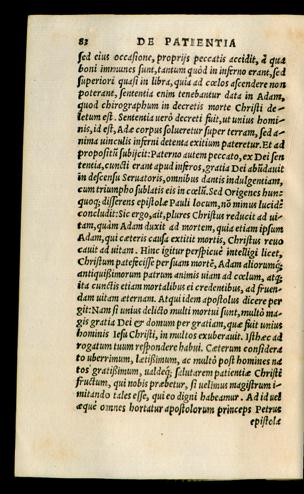 82 DE PATIENTIA
sed eius occasione, proprijs peccatis accidit, à qua
boni immunes sunt, tantum quòd in inferno erant, sed
superiori quasi in libra, quia ad cœlos ascendere non
poterant, sententia enim tenebantur data in Adam,
quod chirographum in decretis morte Christi de-
letum est. Sententia uerò decreti fuit, ut unius homi-
nis, id est, Adæ corpus solueretur super terram, sed a-
nima uinculis inferni detenta exitium pateretur. Et ad
propositū subijcit: Paterno autem peccato, ex Dei sen
tentia, cuncti erant apud inferos, gratia Dei abūdauit
in descensu Seruatoris, omnibus dantis indulgentiam,
cum triumpho sublatis eis in cœlū. Sed Origenes hunc
quoq; disserens epistolæ Pauli locum, nō minus lucidè
concludit: Sic ergo, ait, plures Christus reducit ad ui-
tam, quàm Adam duxit ad mortem, quia etiam ipsum
Adam, qui cæteris causa extitit mortis, Christus reuo
cauit ad uitam. Hinc igitur perspicuè intelligi licet,
Christum patefecisse per suam mortē, Adam aliorumq́;
antiquißimorum patrum animis uiam ad cœlum, atq́;
ita cunctis etiam mortalibus ei credentibus, ad fruen-
dam uitam æternam. Atqui idem apostolus dicere per
git: Nam si unius delicto multi mortui sunt, multò ma-
gis gratia Dei & domum per gratiam, quæ fuit unius
hominis Iesu Christi, in multos exuberauit. Isthæc ad
rogatum tuum respondere habui. Cæterum considera
to uberrimum, lætißimum, ac multò post homines na
tos gratißimum, ualdeq́; salutarem patientiæ Christi
fructum, qui nobis præbetur, si uelimus magistrum i-
mitando tales esse, qui eo digni habeamur. Ad id uel
æquè omnes hortatur apostolorum princeps Petrus
epistola